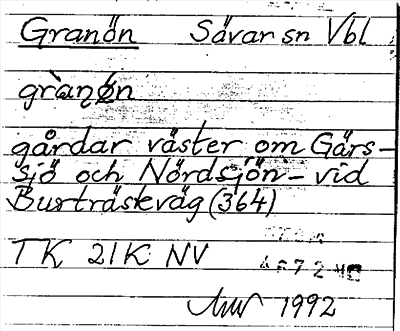 Granön Sävar sn Vbl
gràn̥øn
gårdar väster om Gärs-
sjö och Nördsjön - vid
Burträskväg (364)
TK 21K NV
1992